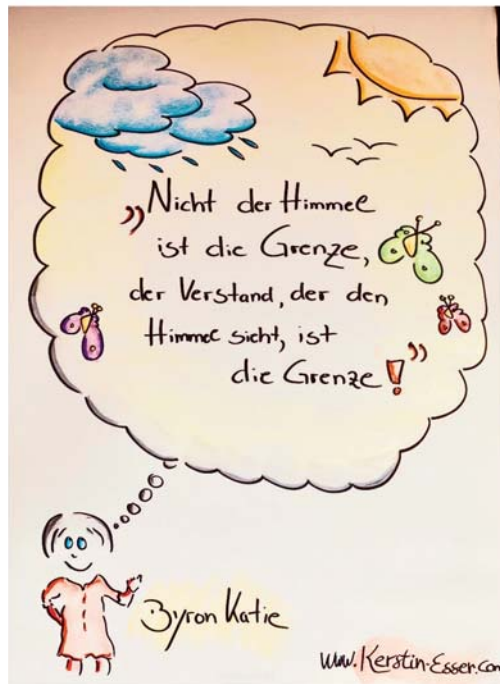 „Nicht der Himmel
ist die Grenze,
der Verstand, der den
Himmel sieht, ist
die Grenze!"
Byron Katie
www.Kerstin-Esser.com